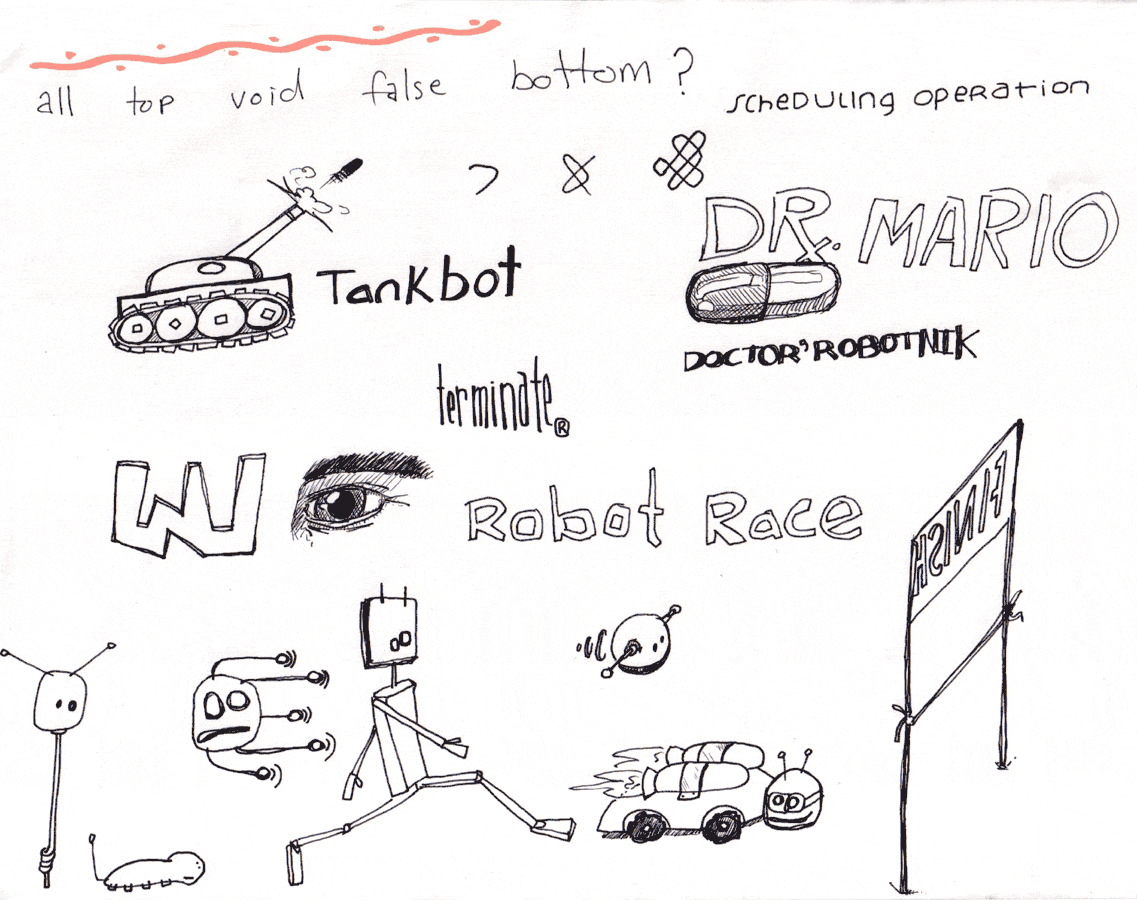 all top void false bottom?
scheDULing opeRation
DR. MARIO
Tankbot
DOCTOR'ROBOTNIK
terminate®
W
Robot Race
FINISH